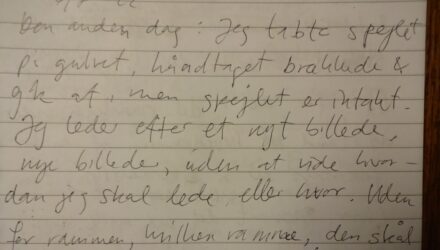 Den anden dag: Jeg tabte spejlet
på gulvet, håndtaget brækkede &
gik af, men spejlet er intakt.
Jeg leder efter et nyt billede,
nye billeder, uden at vide hvor-
dan jeg skal lede eller hvor. Uden
for rammen, hvilken ramme, den skål